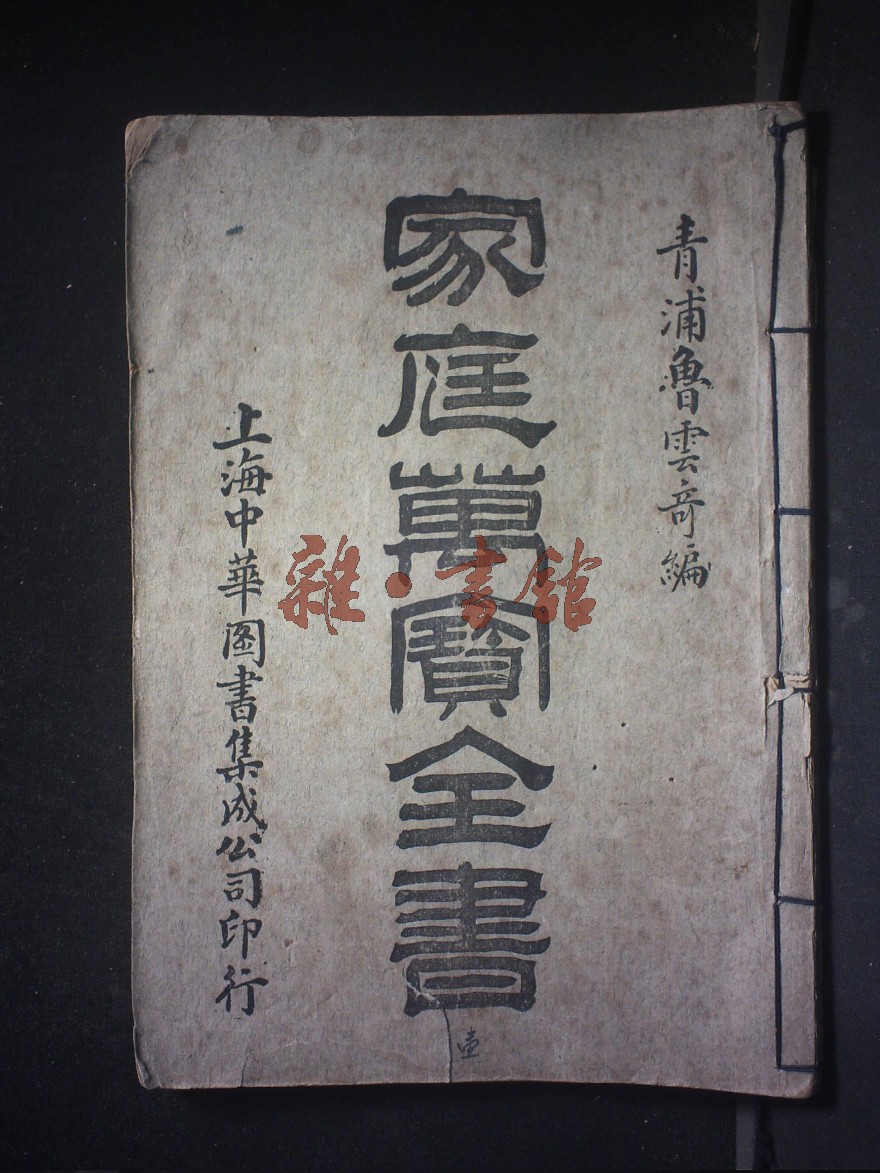 青浦魯雲奇編
家庭萬寶全書
上海中華圖書集成公司印行
壹
雜·書館